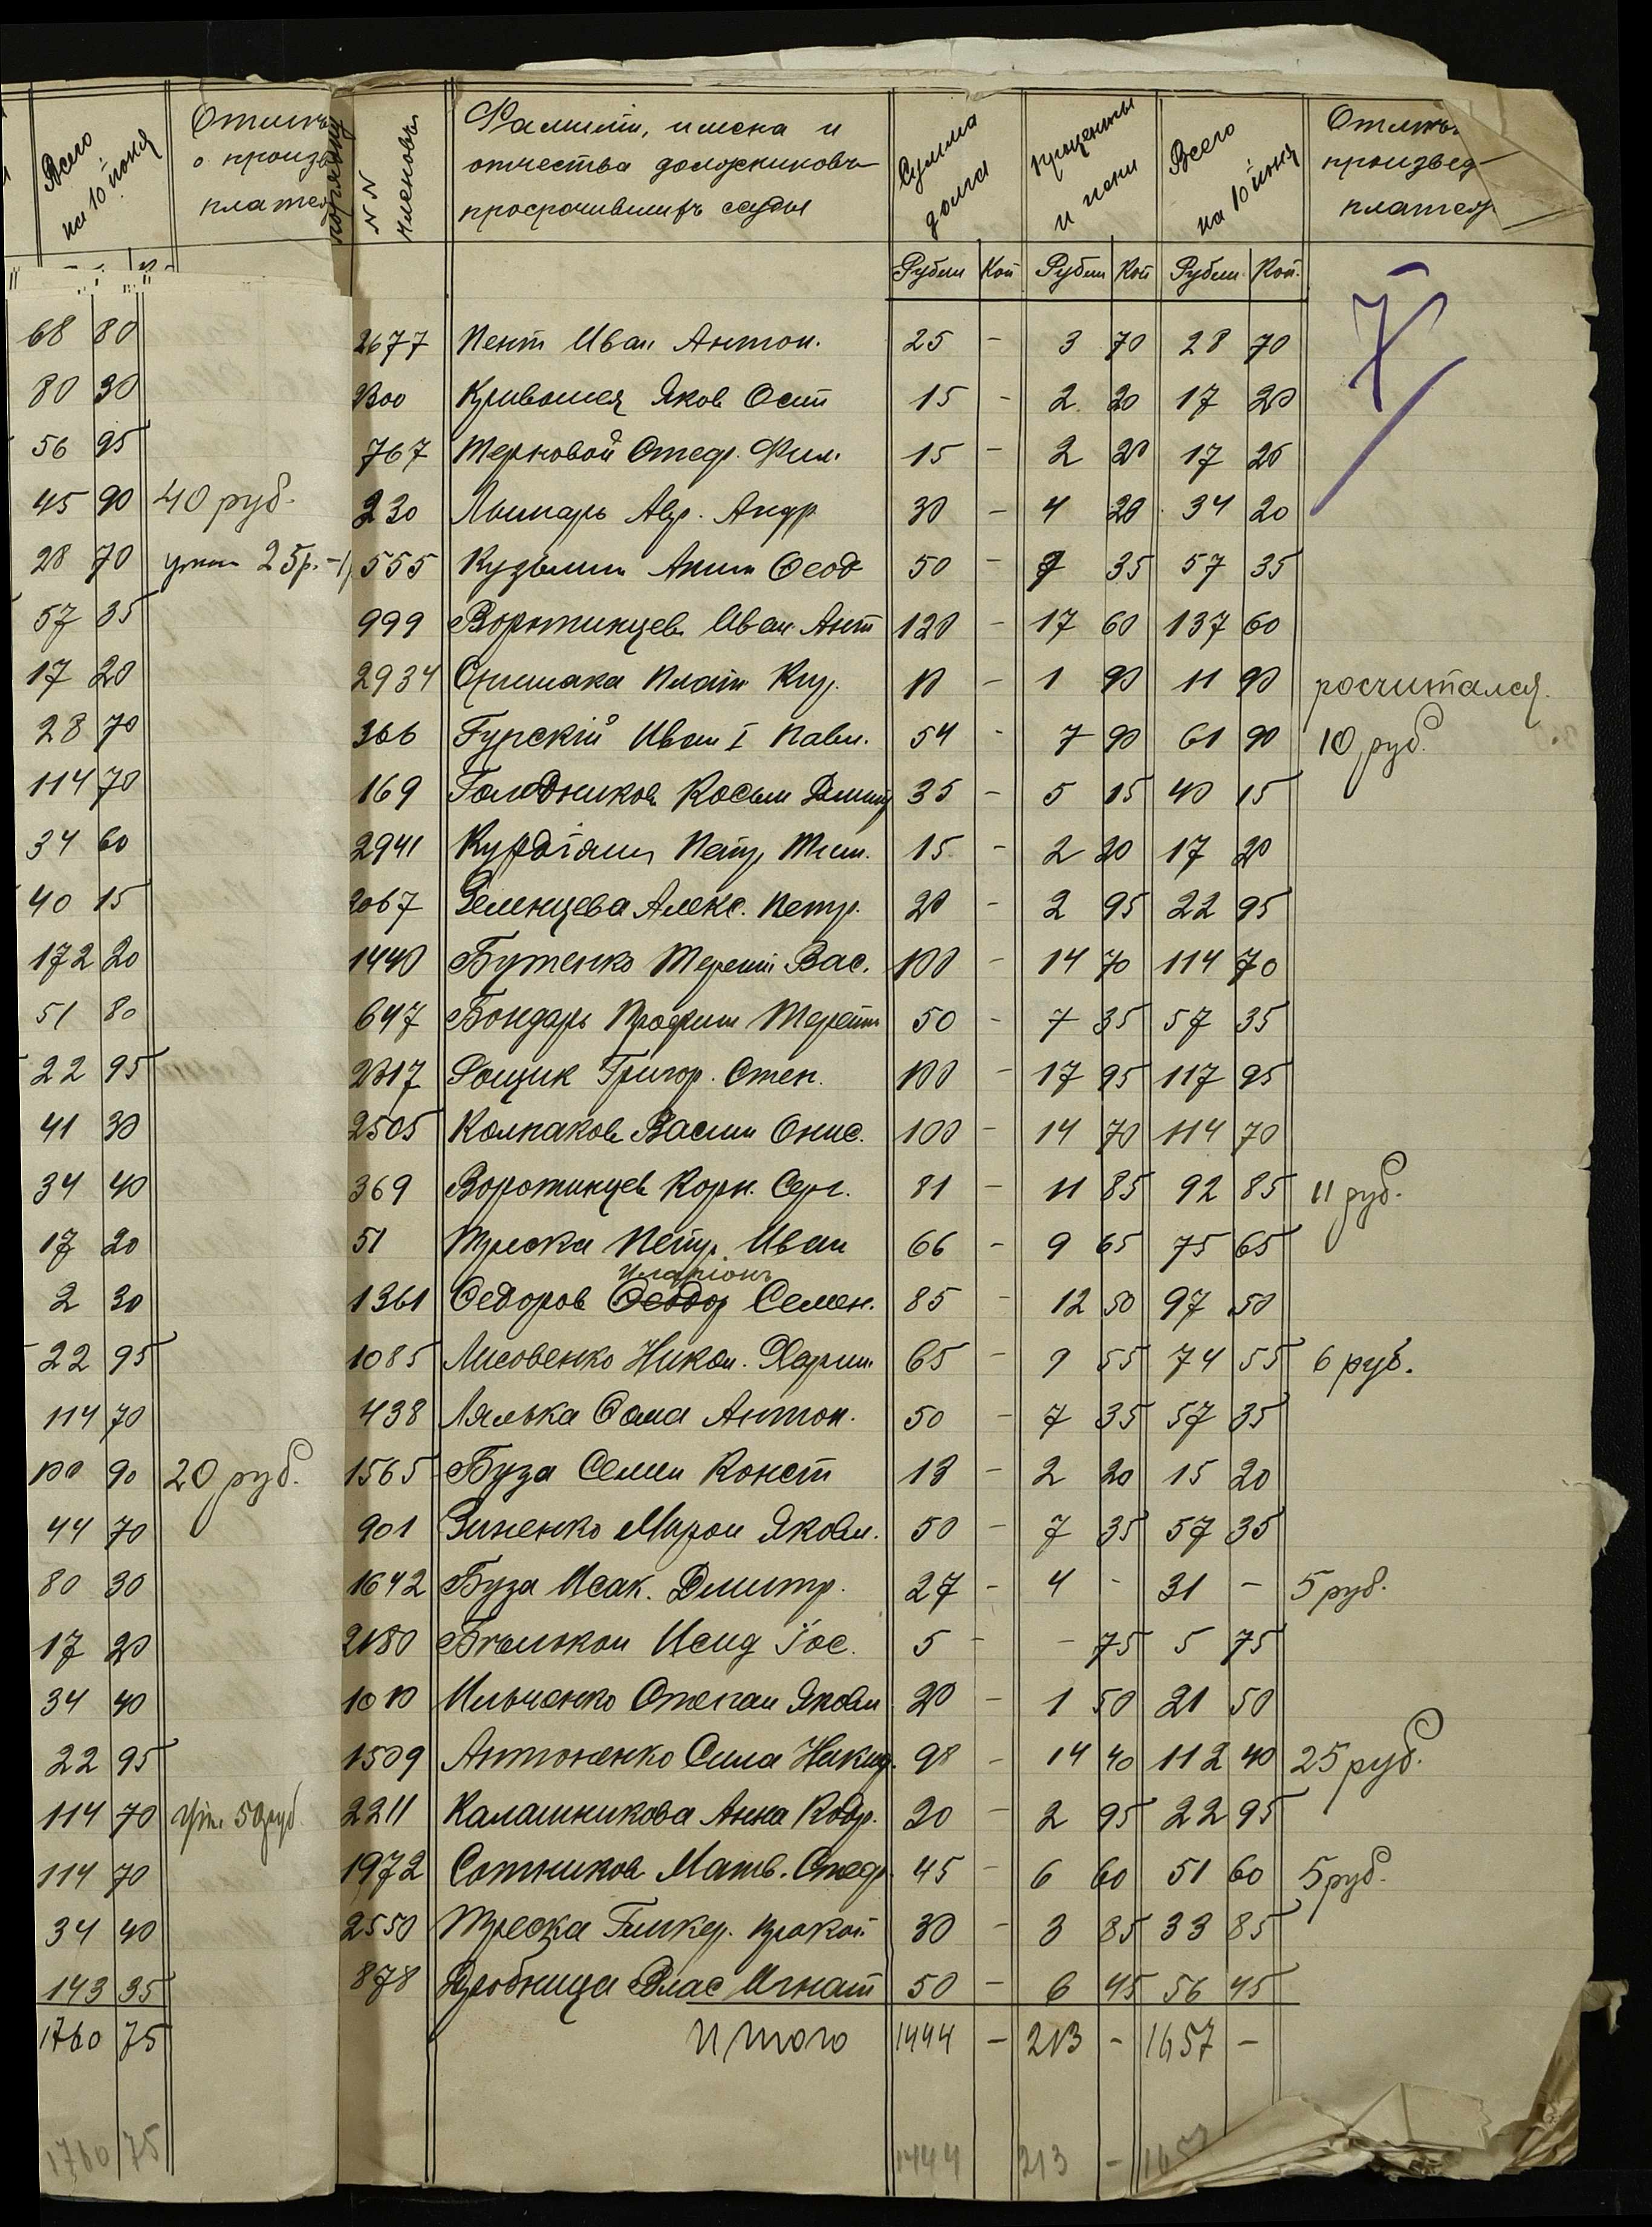 Всего на 10 июня
о произв
платеж
68 80
80 30
56 95
45 90 40 руб.
28 70 25р.
57 35
17 20
28 70
114 70
34 60
40 15
172 20
51 80
22 95
41 30
34 40
17 20
2 30
22 95
114 70
100 90 20 руб.
44 70
80 30
17 20
34 40
22 95
114 70 50 руб
114 70
34 40
143 35
1760 75
1760 75
NN членовъ
Фамиліи, имена и
отчества должниковъ
просрочившихъ ссуды
Сумма долга
проценты и пени
Всего на 10 июня
произвед
платеж
Рубли Коп Рубли Коп Рубли Коп.
2677 Пент Иван Антон. 25 - 3 70 28 70
Кривошея Яков Осип 15 - 2 20 17 20
767 Терновой Федр. Фил. 15 - 2 20 17 20
230 Лымарь Авр. Андр 30 - 4 20 34 20
555 Кузьмин Аким Феод 50 - 7 35 57 35
999 Воротинцев Иван Ант 120 - 17 60 137 60
2934 10 - 1 90 11 90 росчитался.
366 Гурскій Иван I Павл. 54 - 7 90 61 90 10 руб.
169 Голодников Косьм Дмит 35 - 5 15 40 15
2941 15 - 2 20 17 20
2067 Зеленцева Алекс. Петр. 20 - 2 95 22 95
1440 Бутенко Терент Вас. 100 - 14 70 114 70
647 Бондарь Трофим Терент 50 - 7 35 57 35
2317 Рощик Григор. Степ. 100 - 17 95 117 95
2505 Колпаков Васил Онис. 100 - 14 70 114 70
369 Воротинцев Корн. Серг. 81 - 11 85 92 85 11 руб.
51 Треска Петр. Иван 66 - 9 65 75 65
Иларіонъ
1361 Федоров Феодор Семен. 85 - 12 50 97 50
1085 Лисовенко Никол. Харит 65 - 9 55 74 55 6 руб.
438 Лялька Фома Антон. 50 - 7 35 57 35
1565 Буза Семен Конст 13 - 2 20 15 20
901 Зиненко Мирон Яковл. 50 - 7 35 57 35
1642 Буза Исак. Дмитр. 27 - 4 - 31 - 5 руб.
2180 Бѣлокон Исид Іос. 5 - - 75 5 75
1010 Ильченко Степан Яковл 20 - 1 50 21 50
1509 Антоненко Сила Никид. 98 - 14 40 112 40 25 руб.
2211 Калашникова Анна 20 - 2 95 22 95
1972 Сотников Матв. Федр. 45 - 6 60 51 60 5 руб.
2550 Треска Гликер. Прокоп. 30 - 3 85 33 85
878 Дробница Влас Игнат 50 - 6 45 56 45
Итого 1444 - 213 - 1657 -
1444 213 - 1657